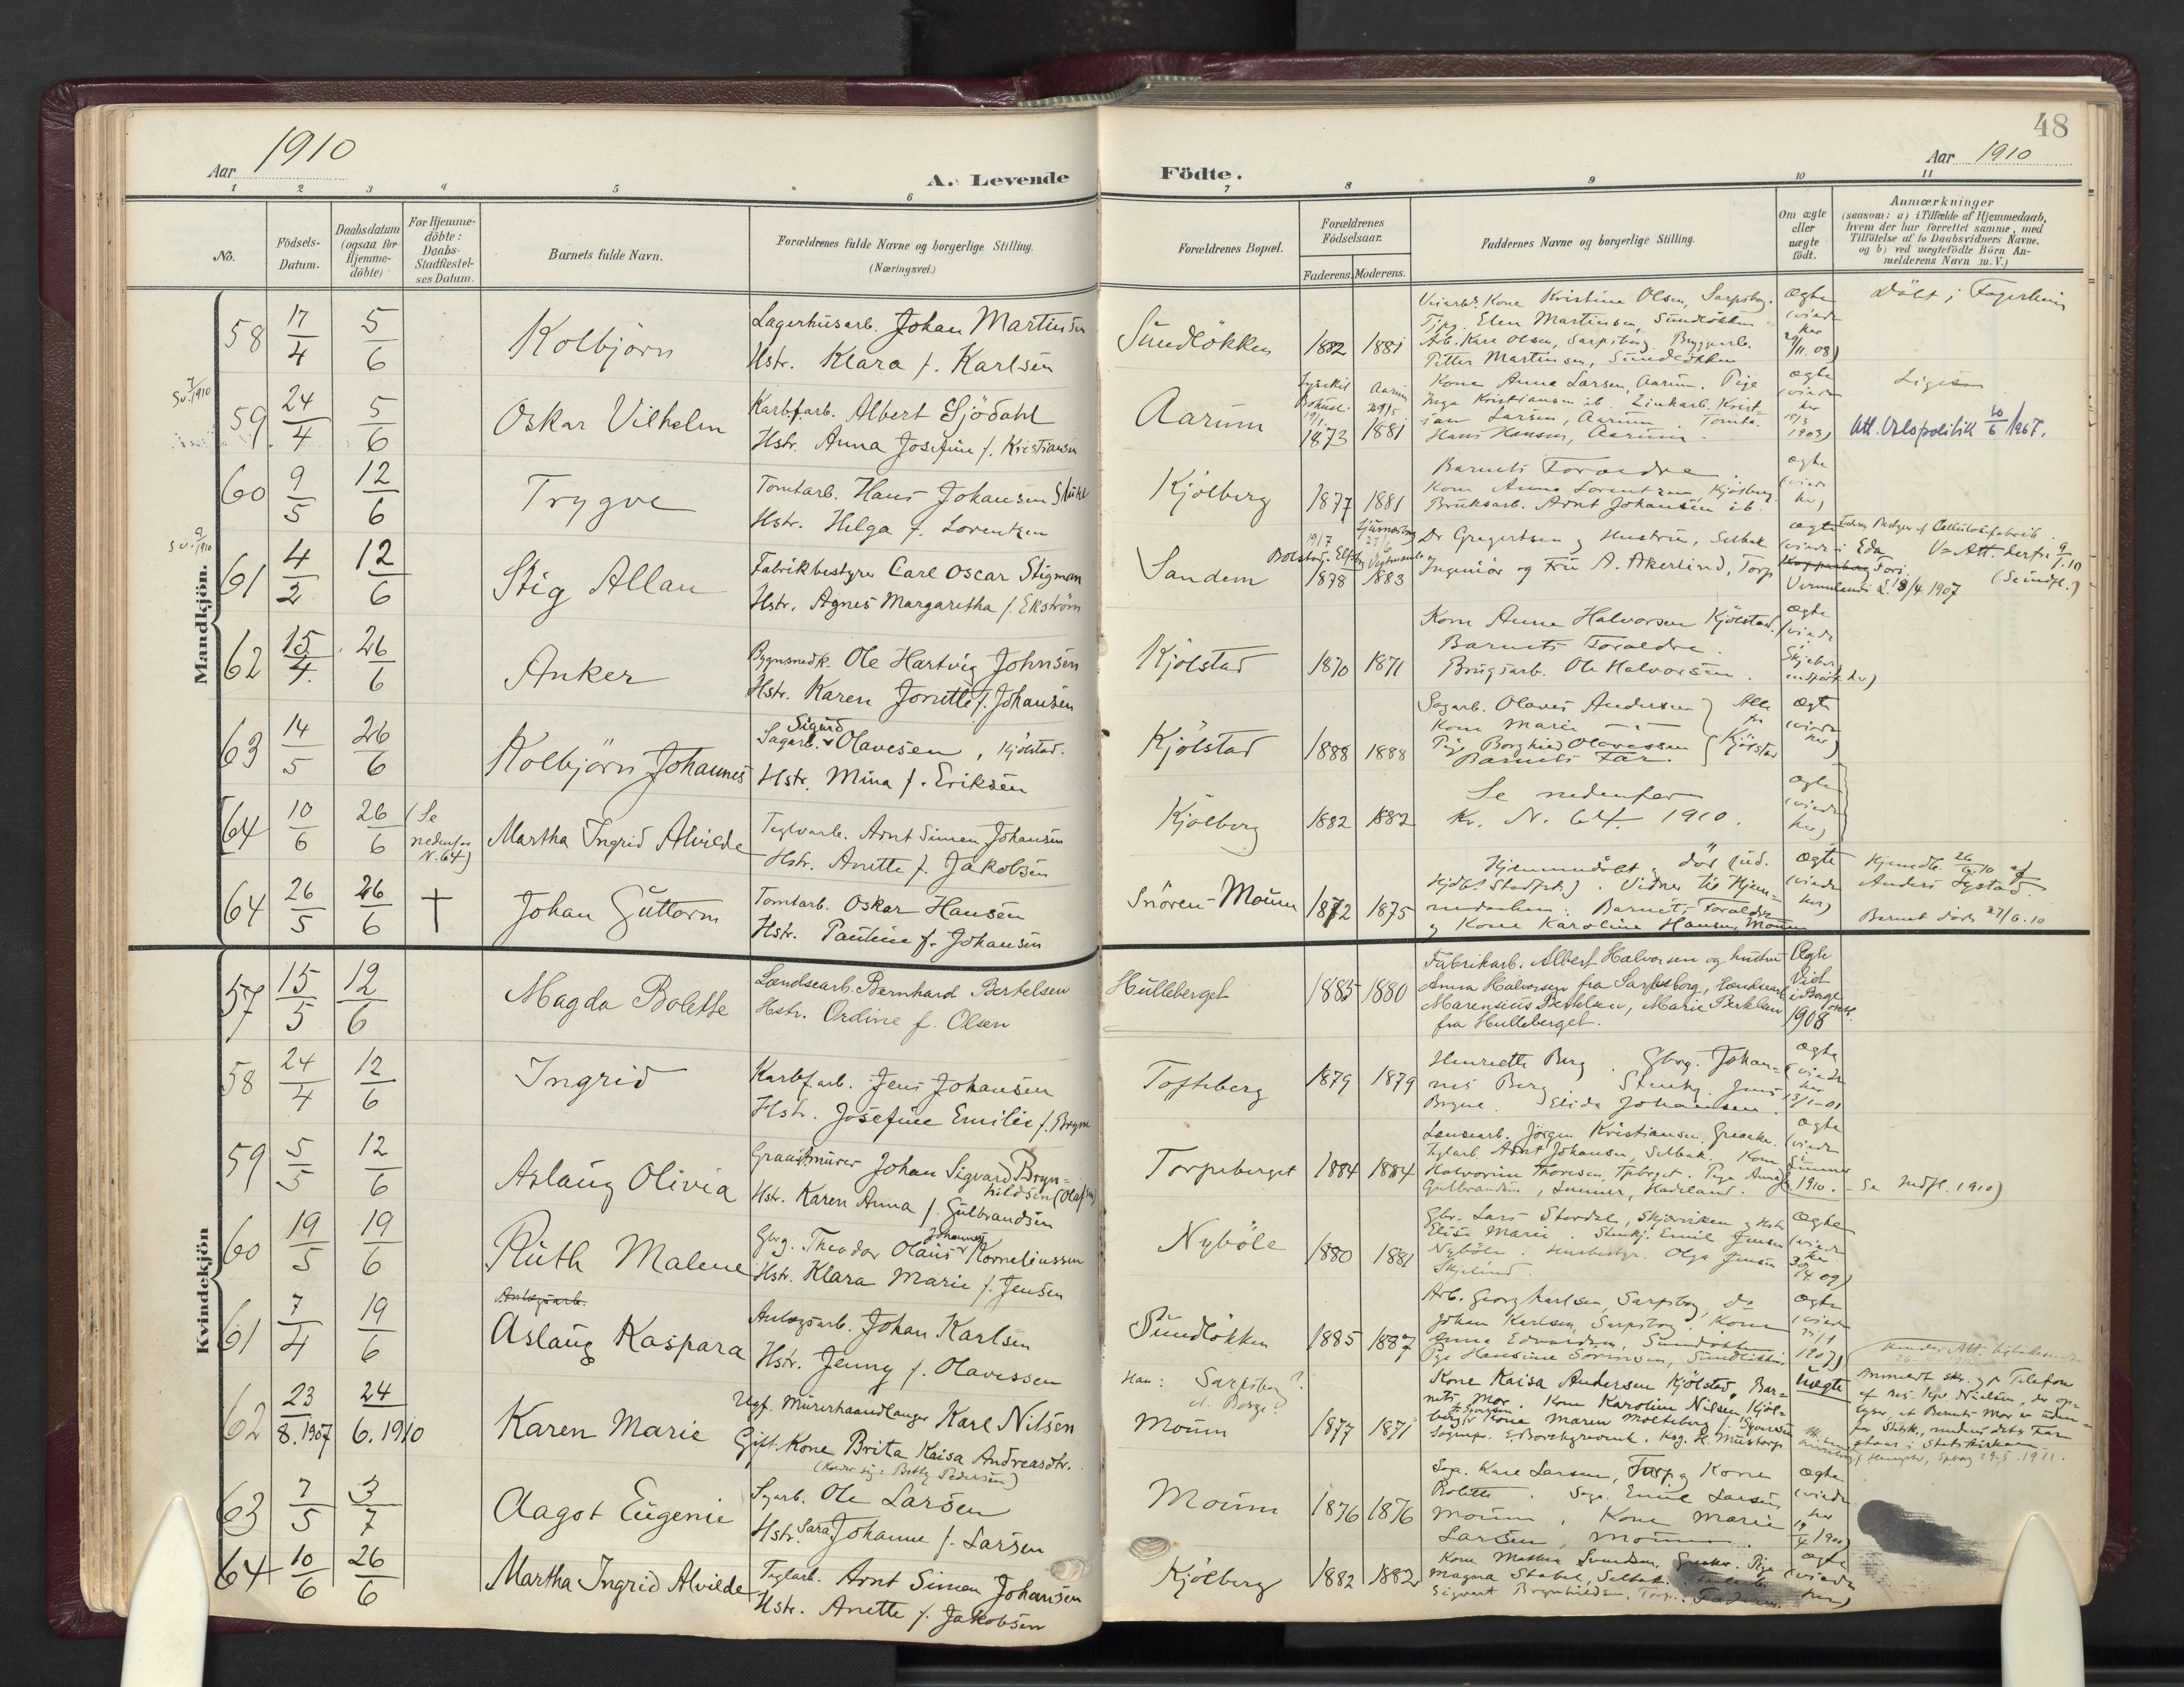 48
Aar 1910
A. Levende
Födte.
Aar 1910
1 2 3 4 5 6 7 8 9 10 11
No.
Födsels-
Datum.
Daabsdatum
(ogsaa for
Hjemme-
döbte)
For Hjemme-
döbte:
Daabs-
Stadfæstel-
ses Datum.
Barnets fulde Navn.
Forældrenes fulde Navne og borgerlige Stilling.
(Næringsvei.)
Forældrenes Bopæl.
Forældrenes
Födselsaar.
Faderens. Moderens.
Faddernes Navne og borgerlige Stilling.
Om ægte
eller
uægte
födt.
Anmærkninger
(saasom: a) i Tilfælde af Hjemmedaab,
hvem der har forrettet samme, med
Tilföielse af to Daabsvidners Navne.
og b) ved uægtefödte Börn An-
melderens Navn m. V.)
Mandkjön.
58 17/4 5/6 Kolbjørn
Lagerhusarb. Johan Martinsen
Hstr. Klara f. Karlsen
Sundløkken 1882 1881
Kone Kristine Olsen, Sarpsborg.
Elen Martinsen, Sundløkken
Arb. Kare Olsen, Sarpsborg. Bryggearb.
Petter Martinsen, Sundløkken
Ægte
(viede
her
29/11. 08)
59 24/4 5/6 Oskar Vilhelm
Karbfarb. Albert Sjödahl
Hstr. Anna Josefine f. Kristiansen
Aarum 1873 1881
Kone Anna Larsen, Aarum. Pige
Inga Kristiansen ib. Zinkarb. Krist-
ian Larsen, Aarum. Tomta.
Hans Hansen, Aarum.
Ægte
(viede
her
1903)
Att. Oslo politik 10/6 1967.
60 9/5 12/6 Trygve
Tomtarb. Hans Johansen
Hstr. Helga f. Lorentzen
Kjølberg 1877 1881
Barnets Forældre.
Kone Anna Lorentzen, Kjølberg.
Bruksarb. Arnt Johansen ib.
Ægte
(viede
her)
61 4/2 12/6 Stig Allan
Fabrikbestyrer Carl Oscar Stigman
Hstr. Agnes Margaretha f. Ekström
Sandem 1878 1883
Dr Gregertsen og Hustru, Selbak
Ingeniør og Fru A. Åkerlind, Torp
Ægte
(viede i Eda
18/4 1907
62 15/4 26/6 Anker
Bygnsnedk. Ole Hartvig Johnsen
Hstr. Karen Jonette f. Johansen
Kjølstad 1870 1871
Kone Anna Halvorsen Kjølstad.
Barnets Forældre.
Brugsarb. Ole Halvorsen.
Ægte
(viede
Skjeberg
63 14/5 26/6 Kolbjørn Johannes
Sagarb. Sigurd Olavesen, Kjølstad.
Hstr. Mina f. Eriksen
Kjølstad 1888 1888
Sagarb. Olaves Andersen
Kone Marie
Pige Borghild Olavessen
Barnets Far.
Alle
fra
Kjølstad
Ægte
(viede
her)
64 10/6 26/6 (Se
nedenfor
N. 64) Martha Ingrid Alvilde
Teglvarb. Arnt Simen Johansen
Hstr. Anette f. Jakobsen
Kjølberg 1882 1882
Se nedenfor
Kv. N. 64. 1910.
Ægte
(viede
her)
64 26/5 26/6 † Johan Guttorm
Tomtarb. Oskar Hansen
Hstr. Pauline f. Johansen
Snören-Moum 1872 1875
Hjemmedøbt, død
Vidner til Hjem-
medaaben: Barnets Forældre
og Kone Karoline Hansen, Moum
Ægte
(viede
her)
Hjemdb. 26/6 10 af
Anders Lystad.
Barnet døde 27/6. 10
Kvindekjön
57 15/5 12/6 Magda Bolette
Lændsearb. Bernhard Bertelsen
Hstr. Ordine f. Olsen
Hulleberget 1885 1880
Fabrikarb. Albert Halvorsen og hustru
Anna Halvorsen fra Sarpsborg, Lænsearb.
Marensius Bertelsen, Marie Bertelsen
fra Hulleberget.
Ægte
Viet
i Borge
1908
58 24/4 12/6 Ingrid
Karbfarb. Jens Johansen
Hstr. Josefine Emilie f. Bryn
Tofteberg 1879 1879
Henriette Berg. Gbrg. Johan-
nes Berg. Stenhg. Jens
Elida Johansen.
Ægte
(viede
her
13/1-01
59 5/5 12/6 Aslaug Olivia
Graastmurer Johan Sigvard Bryn-
hildsen (Olafsen)
Hstr. Karen Anna f. Gulbrandsen
Torpeberget 1884 1884
Lænsearb. Jørgen Kristiansen, Greaaker.
Teglarb. Arnt Johansen, Selbak. Kone
Halvorine Thoresen, Tpbrget. Pige Anna
Gulbrandsen, Lunner, Hadeland.
Ægte
(viede
Lunner
1910.
60 19/5 19/6 Ruth Malene
Gbrg. Theodor Olaus Johannes Korneliussen
Hstr. Klara Marie f. Jensen
Nybøle 1880 1881
Gbr. Lars Stordal, Skjærviken og Hstr.
Elise Marie. Stenhj. Emil Jensen
Nybøle. Husbestyr. Olga Jensen
Skjelind.
Ægte
(viede
her
30/4 09)
Anlægsarb.
61 7/4 19/6 Aslaug Kaspara
Anlægsarb. Johan Karlsen
Hstr. Jenny f. Olavessen
Sundløkken 1885 1887
Arb. Georg Karlsen, Sarpsborg, Do
Johan Karlsen, Sarpsborg. Kone
Anna Edvardsen, Sundløkken
Pige Hansine Sørensen, Sundløkken
Ægte
(viede
1907)
62 23/8. 1907 24/6. 1910 Karen Marie
Ugf. Murerhaandlanger Karl Nilsen
Gift Kone Brita Kaisa Andreasdtr.
(Kalder sig: Betty Pedersen)
Han: Sarpsborg?
el. Borge?
Moum 1877 1871
Kone Kaisa Andersen Kjølstad, Bar-
nets Mor. Kone Karoline Nilsen Kjøl-
berg, Kone Maren Molteberg
Uægte
Anmeldt skr. og pr Telefon
af res. kpl. Nielsen, der op-
lyser, at Barnets Mor er uden-
for Statsk., medens dets Far
staar i Statskirken.
63 7/5 3/7 Aagot Eugenie
Sagarb. Ole Larsen
Hstr. Sara Johanne f. Larsen
Moum 1876 1876
Sag. Kare Larsen, Torp og Kone
Bolette. Sag. Emil Larsen
Moum. Kone Marie
Larsen, Moum.
Ægte
(viede
her
64 10/6 26/6 Martha Ingrid Alvilde
Teglarb. Arnt Simen Johansen
Hstr. Anette f. Jakobsen
Kjølberg 1882 1882
Kone Mathea Svendsen, Pige
Magna Stabel, Selbak.
Sigvart Brynhildsen, Torp.
Ægte
(viede
her)